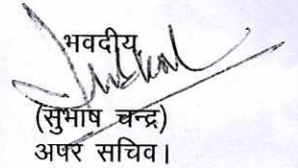 भवदीय
(सुभाष चन्द्र)
अपर सचिव।